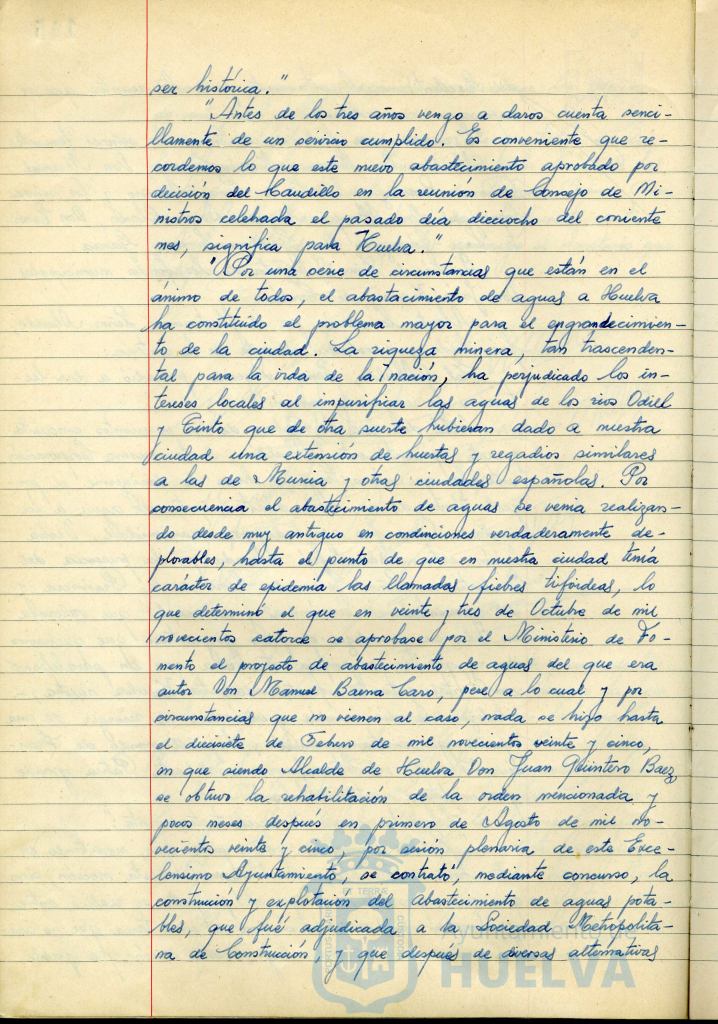 ser histórica."
"Antes de los tres años vengo a daros cuenta senci-
llamente de un servicio cumplido. Es conveniente que re-
cordemos lo que este nuevo abastecimiento aprobado por
decisión del Caudillo en la reunión de Consejo de Mi-
nistros celebrada el pasado día dieciocho del corriente
mes, significa para Huelva."
"Por una serie de circunstancias que están en el
ánimo de todos, el abastacimiento de aguas a Huelva
ha constituído el problema mayor para el engrandecimien-
to de la ciudad. La riqueza minera, tan trascenden-
tal para la vida de la nación, ha perjudicado los in-
tereses locales al impurifiar las aguas de los rios Odiel
y Tinto que de otra suerte hubieran dado a nuestra
ciudad una extensión de huertas y regadios similares
a las de Murcia y otras ciudades españolas. Por
consecuencia el abastecimiento de aguas se venia realizan-
do desde muy antiguo en condiciones verdaderamente de-
plorables, hasta el punto de que en nuestra ciudad tenía
carácter de epidemia las llamadas fiebres tifoideas, lo
que determinó el que en veinte y tres de Octubre de mil
novecientos catorce se aprobase por el Ministerio de Fo-
mento el proyecto de abastecimiento de aguas del que era
autor Don Manuel Baena Caro, pese a lo cual y por
circunstancias que no vienen al caso, nada se hizo hasta
el diecisiete de Febrero de mil novecientos veinte y cinco,
en que siendo Alcalde de Huelva Don Juan Quintero Baez,
se obtuvo la rehabilitación de la orden mencionada y
pocos meses después en primero de Agosto de mil no-
vecientos veinte y cinco, por sesión plenaria de este Exce-
lensimo Ayuntamiento, se contrató, mediante concurso, la
construción y explotación del Abastecimiento de aguas pota-
bles, que fué adjudicada a la Sociedad Metropolita-
na de Construcción, y que después de diversas alternativas
Ayuntamiento de
HUELVA